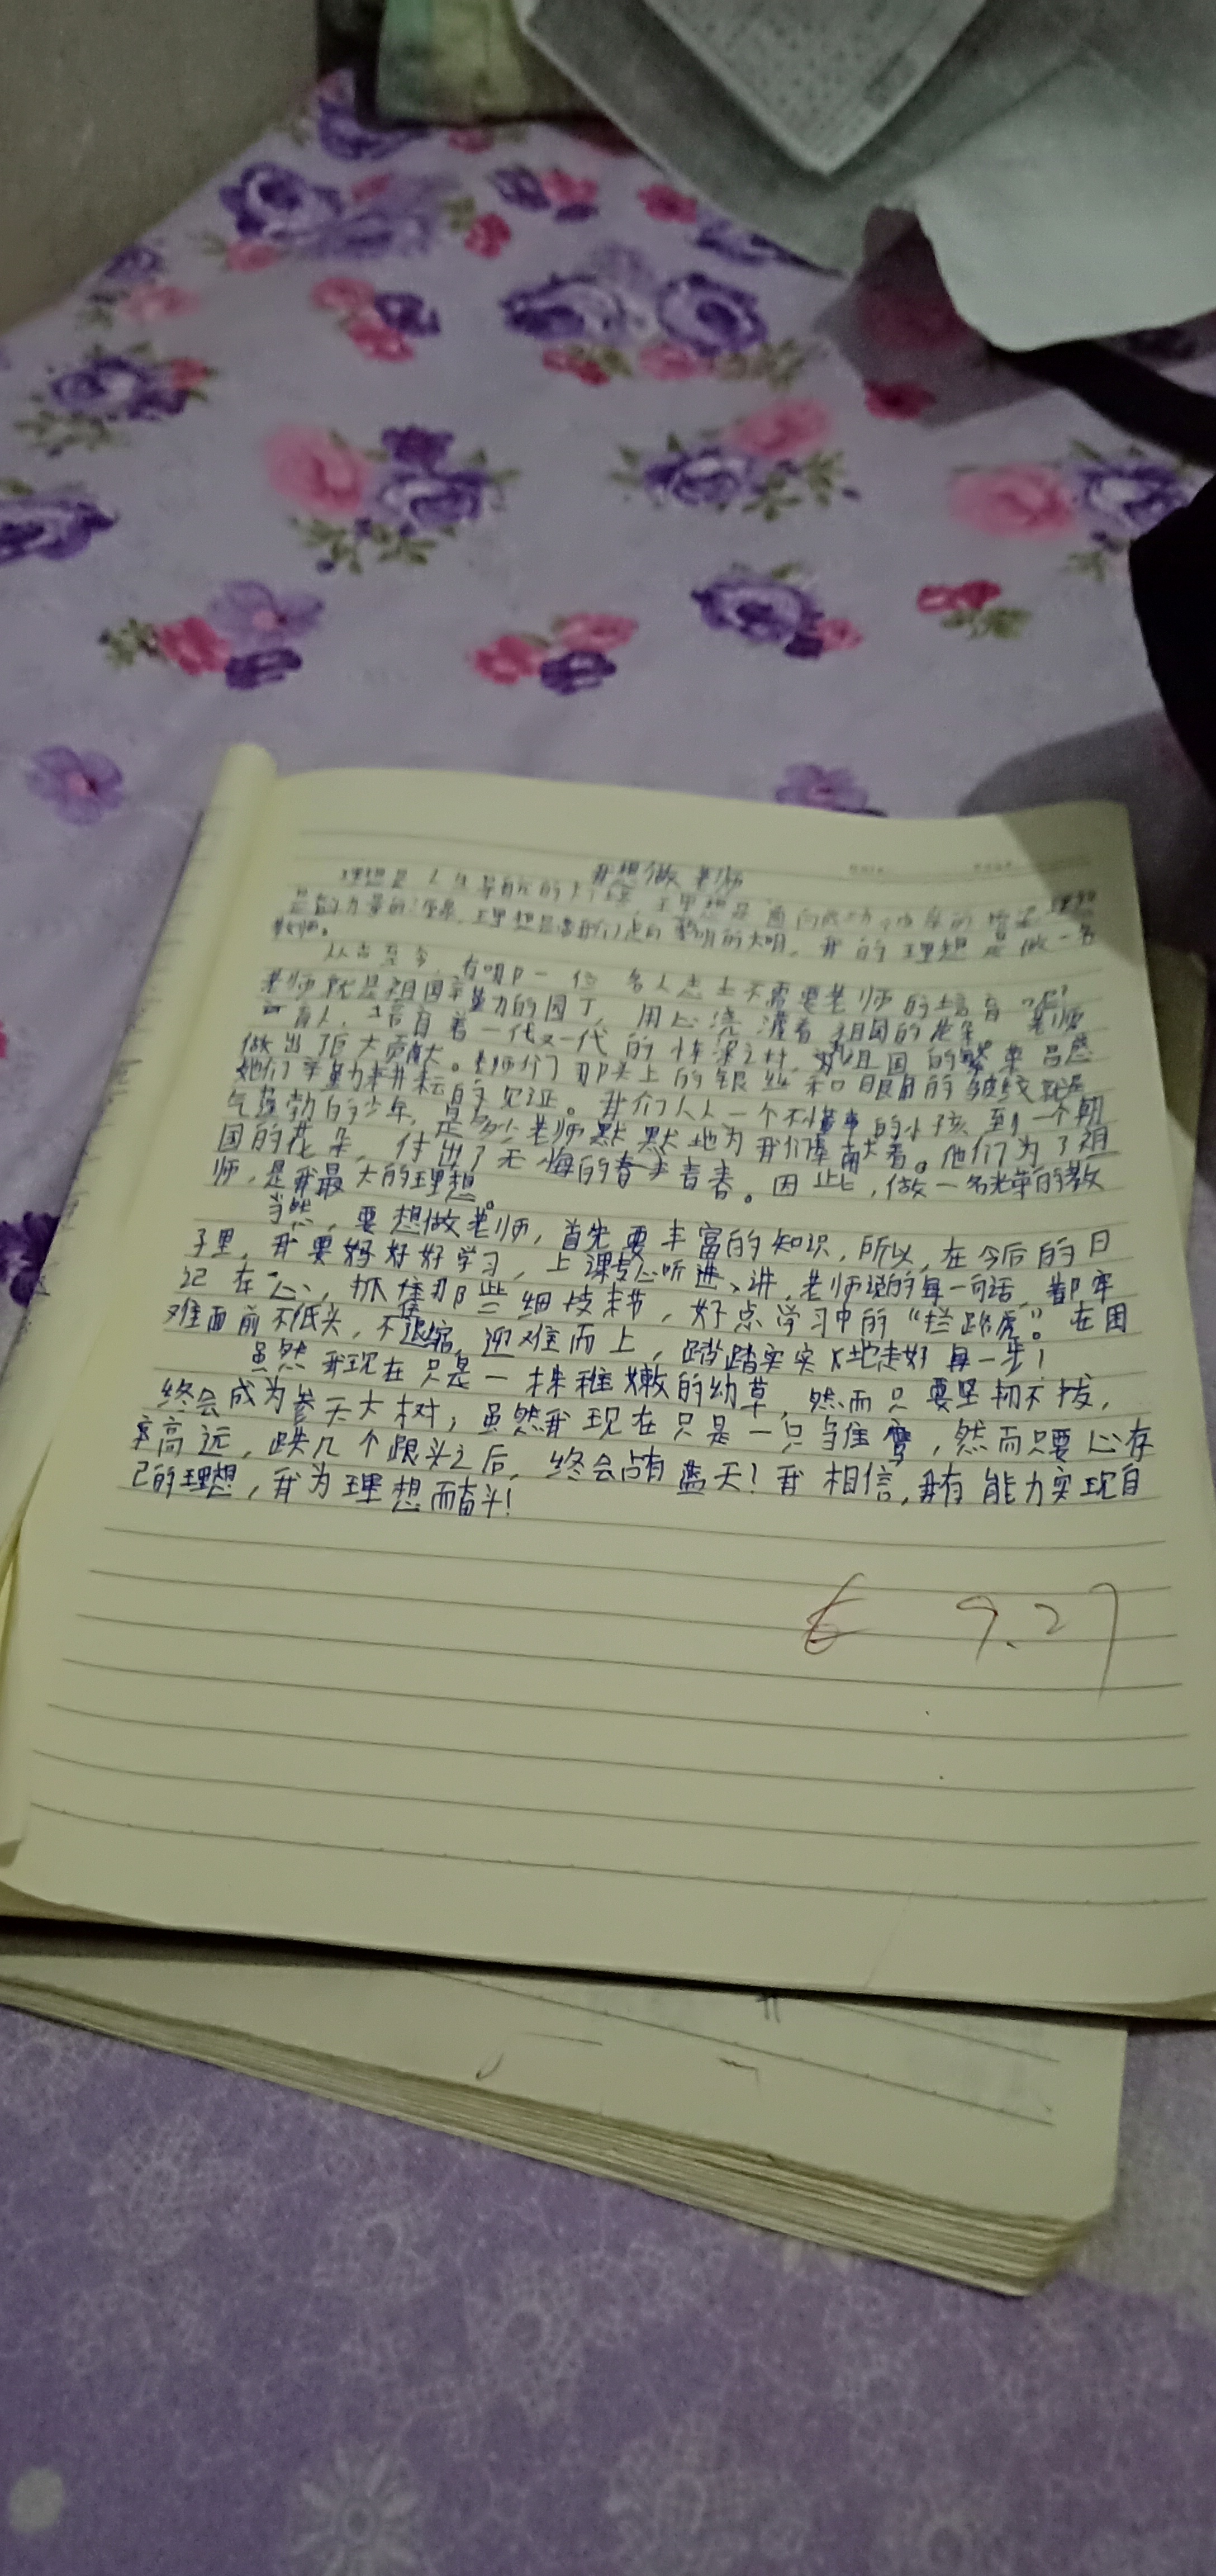 我想做老师
理想是人生导航的灯塔,理想是通向成功的阶梯,理想
是能力量的源泉,理想是为我们点亮黎明的大明。我的理想是做一名
教师。
从古至今,有哪一位名人志士不需要老师的培育呢?
老师就是祖国辛勤的园丁,用心浇灌着祖国的花朵
育人,培育着一代又一代的栋梁之材,为祖国的繁荣昌盛
做出了巨大贡献。老师们那头上的银丝和眼角的皱纹就是
她们辛勤耕耘的见证。我们从一个不懂事的小孩到一个朝
气蓬勃的少年,是多少老师默默地为我们奉献着。他们为了祖
国的花朵,付出了无悔的青春。因此,做一名光荣的教
师,是我最大的理想。
当然,要想做老师,首先要丰富的知识,所以,在今后的日
子里,我要好好学习,上课专心听讲,老师说的每一句话,都牢
记在心,抓住那些细枝末节,好点学习中的“拦路虎”。在困
难面前不低头,不退缩,迎难而上,踏踏实实地走好每一步!
虽然我现在只是一株稚嫩的幼草,然而只要坚韧不拔,
终会成为参天大树;虽然我现在只是一只雏鹰,然而只要心存
高远,跌几个跟头之后,终会占有蓝天!我相信,我有能力实现自
己的理想,我为理想而奋斗!
9.27